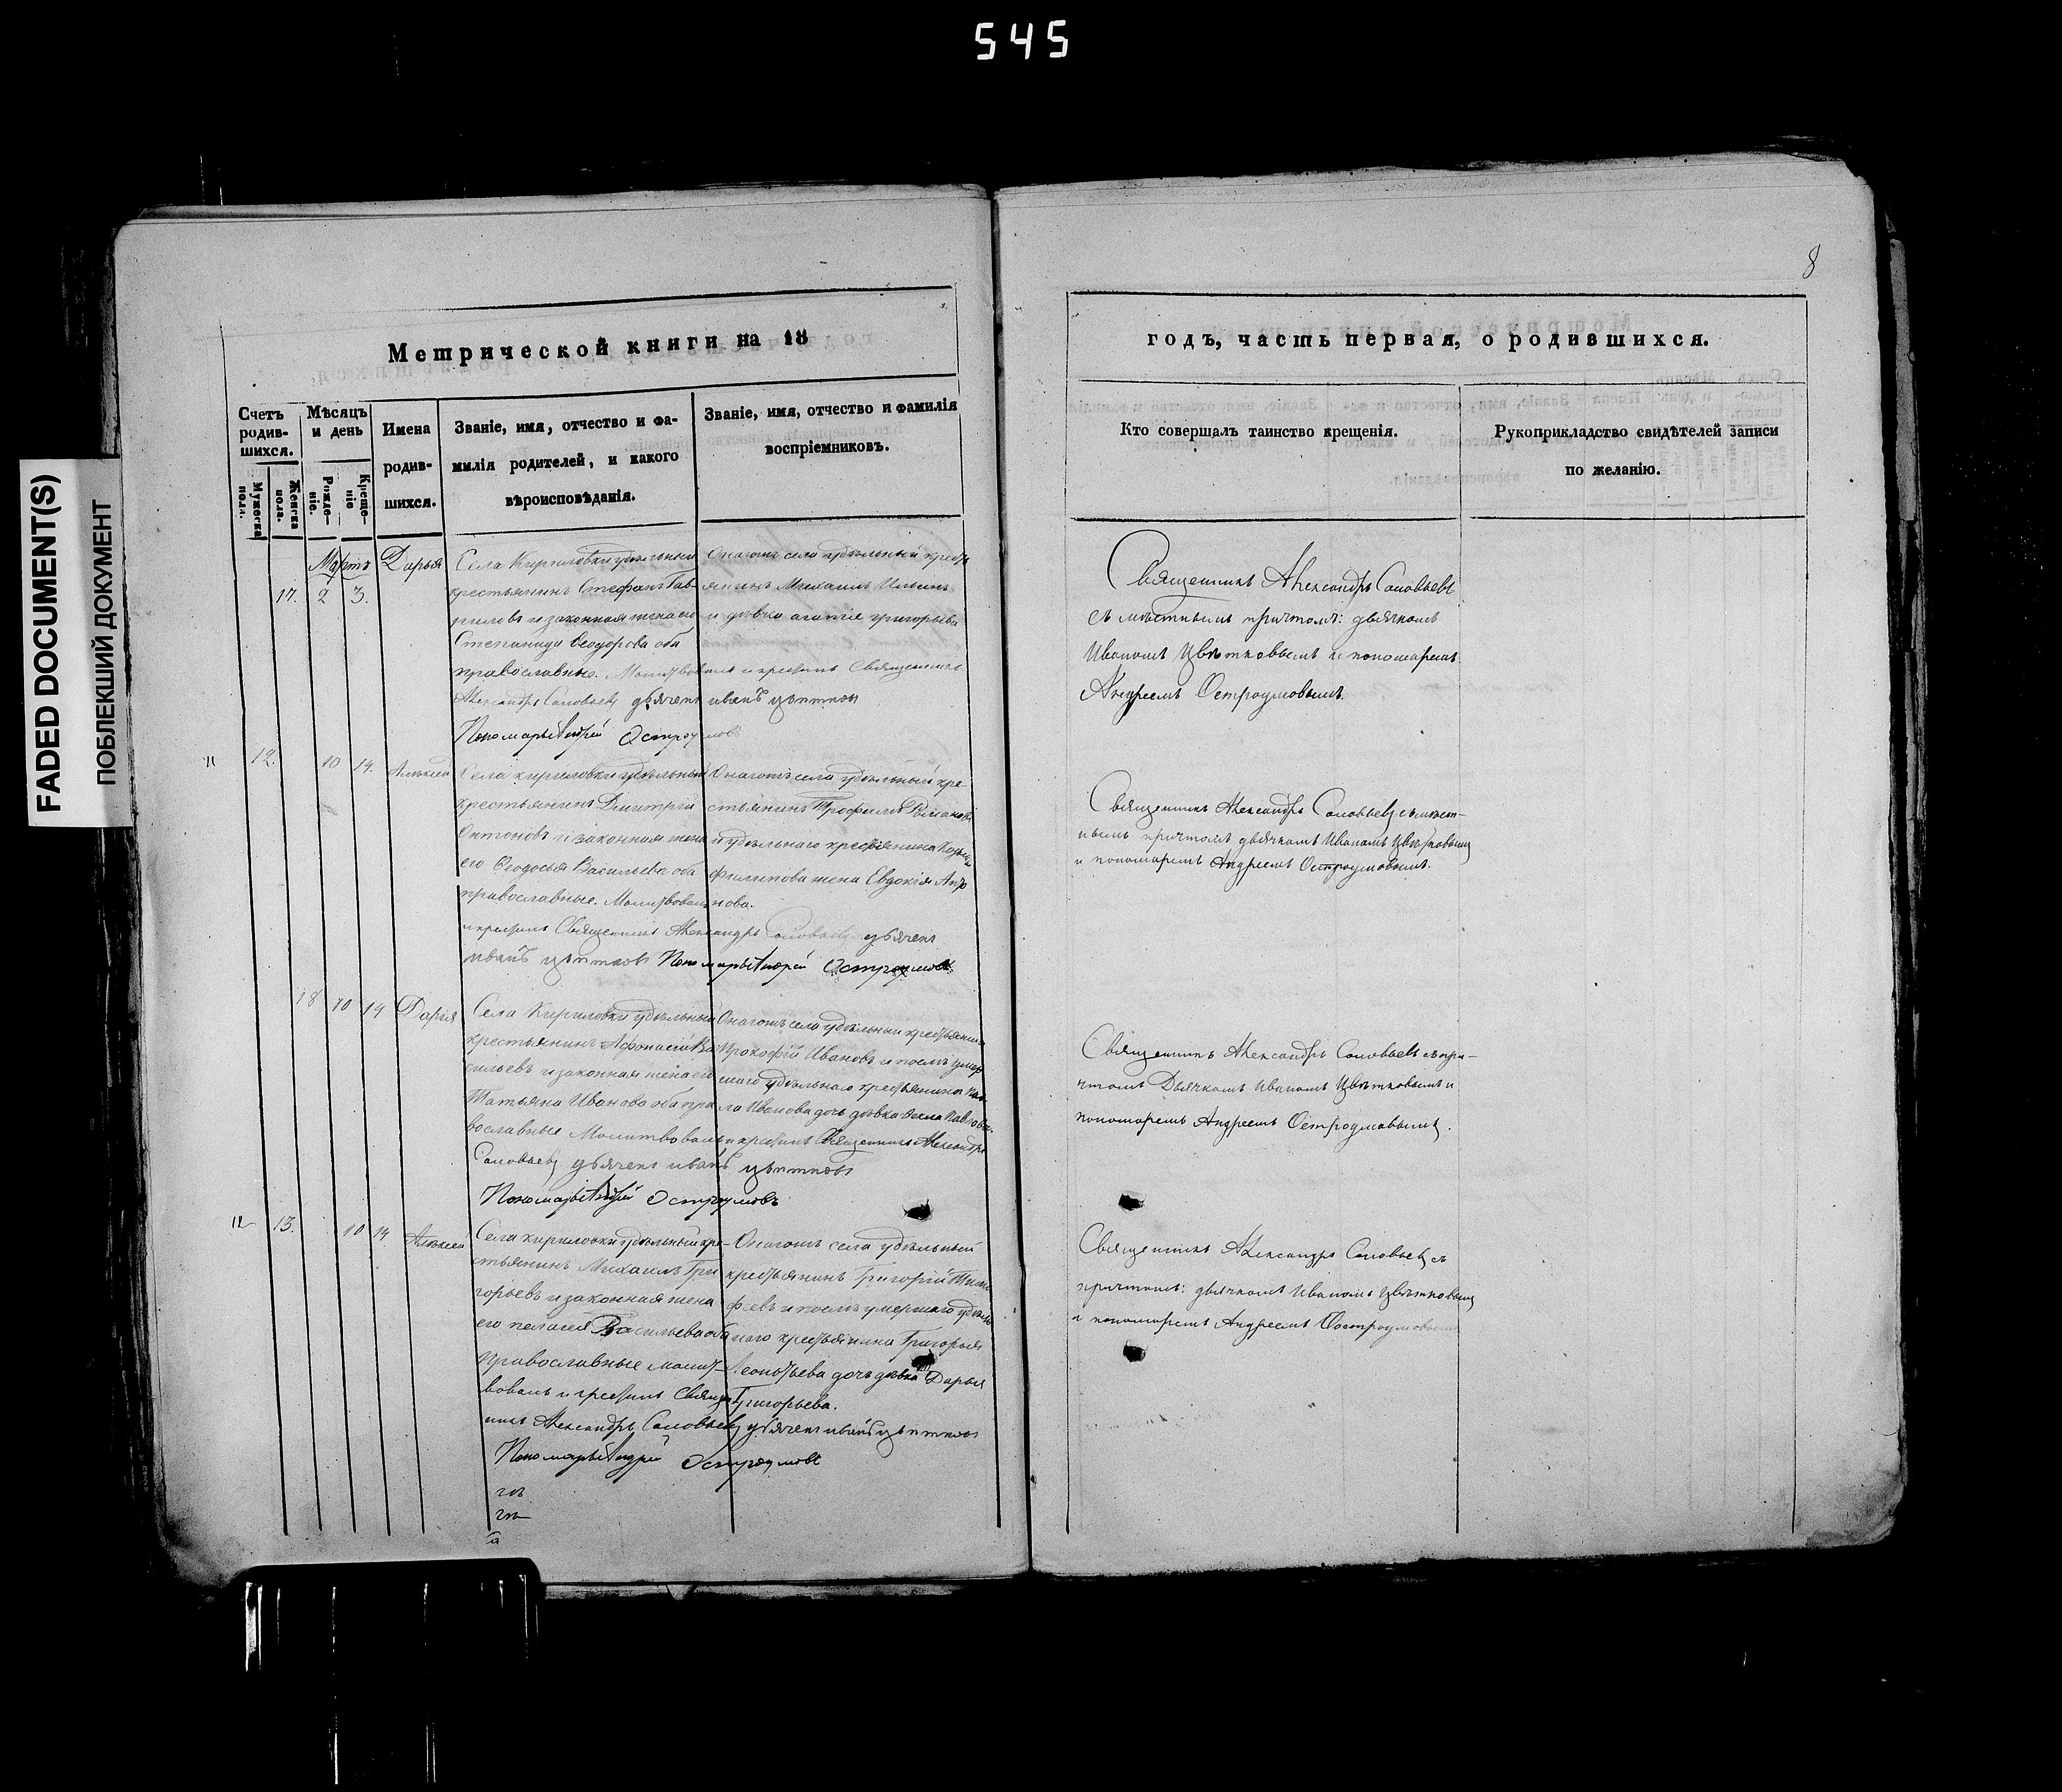 545
8
FADED DOCUMENT(S)
ПОБЛЕКШИЙ ДОКУМЕНТ
Метрической книги на 18
Счетъ родив-шихся.
Мужеска пола.
Женска пола.
Мѣсяцъ и день
Рожде-ніе.
Креще-ніе
Имена родив-шихся.
Званіе, имя, отчество и фа-
милія родителей, и какого
вѣроисповѣданія.
Званіе, имя, отчество и фамилія
воспріемниковъ.
Мартъ
17. 2 3.
Дарья
Села Кириловки удѣльный
крестьянинъ Стефанъ Гав-
риловъ и законная жена его
Степанида Ѳеодорова оба
православные. Молитвовалъ и крестилъ Священникъ
Александръ Соловьевъ дьячекъ иванъ цветковъ
Пономарь Андрей Остроумовъ
Онагожъ села удѣльный кресть
янинъ Михаилъ Ильинъ
и дѣвка агапіе григорьева
11 12. 10 14. Алексей
Села кириловки удѣльный
крестьянинъ Димитрій
Онтоновъ и законная жена
его Ѳеодосья Васильева оба
православные. Молитвовалъ
и крестилъ Священникъ Александръ Соловьевъ дьячекъ
иванъ цветковъ Пономарь Андрей Остроумовъ
Онагожъ села удѣльный кре-
стьянинъ Трофимъ
и удѣльнаго крестьянина
Филипова жена Евдокія Анто
нова.
18 10 14 Дарія
Села Кириловки удѣльный
крестьянинъ Афонасій Ва
сильевъ и законная жена его
Татьяна Иванова оба пра
вославные Молитвовалъ и крестилъ Священникъ Александръ
Соловьевъ дьячекъ иванъ цветковъ
Пономарь Андрей Остроумовъ
Онагожъ села удѣльный крестьянинъ
Прокофій Ивановъ и послѣ умер
шаго удѣльнаго крестьянина Пав
ла Иванова дочь дѣвка Ѳекла Павлова.
12 13. 10 14 Алексей
Села кириловки удѣльный кре-
стьянинъ Михаилъ Гри
горьевъ и законная жена
его пелагея Васильева оба
Православные молит-
вовалъ и крестилъ Священ
никъ Александръ Соловьевъ дьячекъ иванъ цветковъ
Пономарь Андрей Остроумовъ
Онагожъ села удѣльный
крестьянинъ Григорій Тимо
феевъ и послѣ умершаго удѣль
наго крестьянина Григорья
Леонтьева дочь дѣвка Дарья
Григорьева.
годъ, часть первая, о родившихся.
Кто совершалъ таинство крещенія.
Рукоприкладство свидѣтелей записи
по желанію.
Священникъ Александръ Соловьевъ
съ мѣстнымъ причтомъ: дьячкомъ
Иваномъ Цвѣтковымъ и пономаремъ
Андреемъ Остроумовымъ.
Священникъ Александръ Соловьевъ съ мѣст-
нымъ причтомъ дьячкомъ Иваномъ Цвѣтковымъ
и пономаремъ Андреемъ Остроумовымъ.
Священникъ Александръ Соловьевъ съ при-
чтомъ Дьячкомъ Иваномъ Цвѣтковымъ и
пономаремъ Андреемъ Остроумовымъ.
Священникъ Александръ Соловьевъ съ
причтомъ: дьячкомъ Иваномъ Цвѣтковымъ
и пономаремъ Андреемъ Остроумовымъ